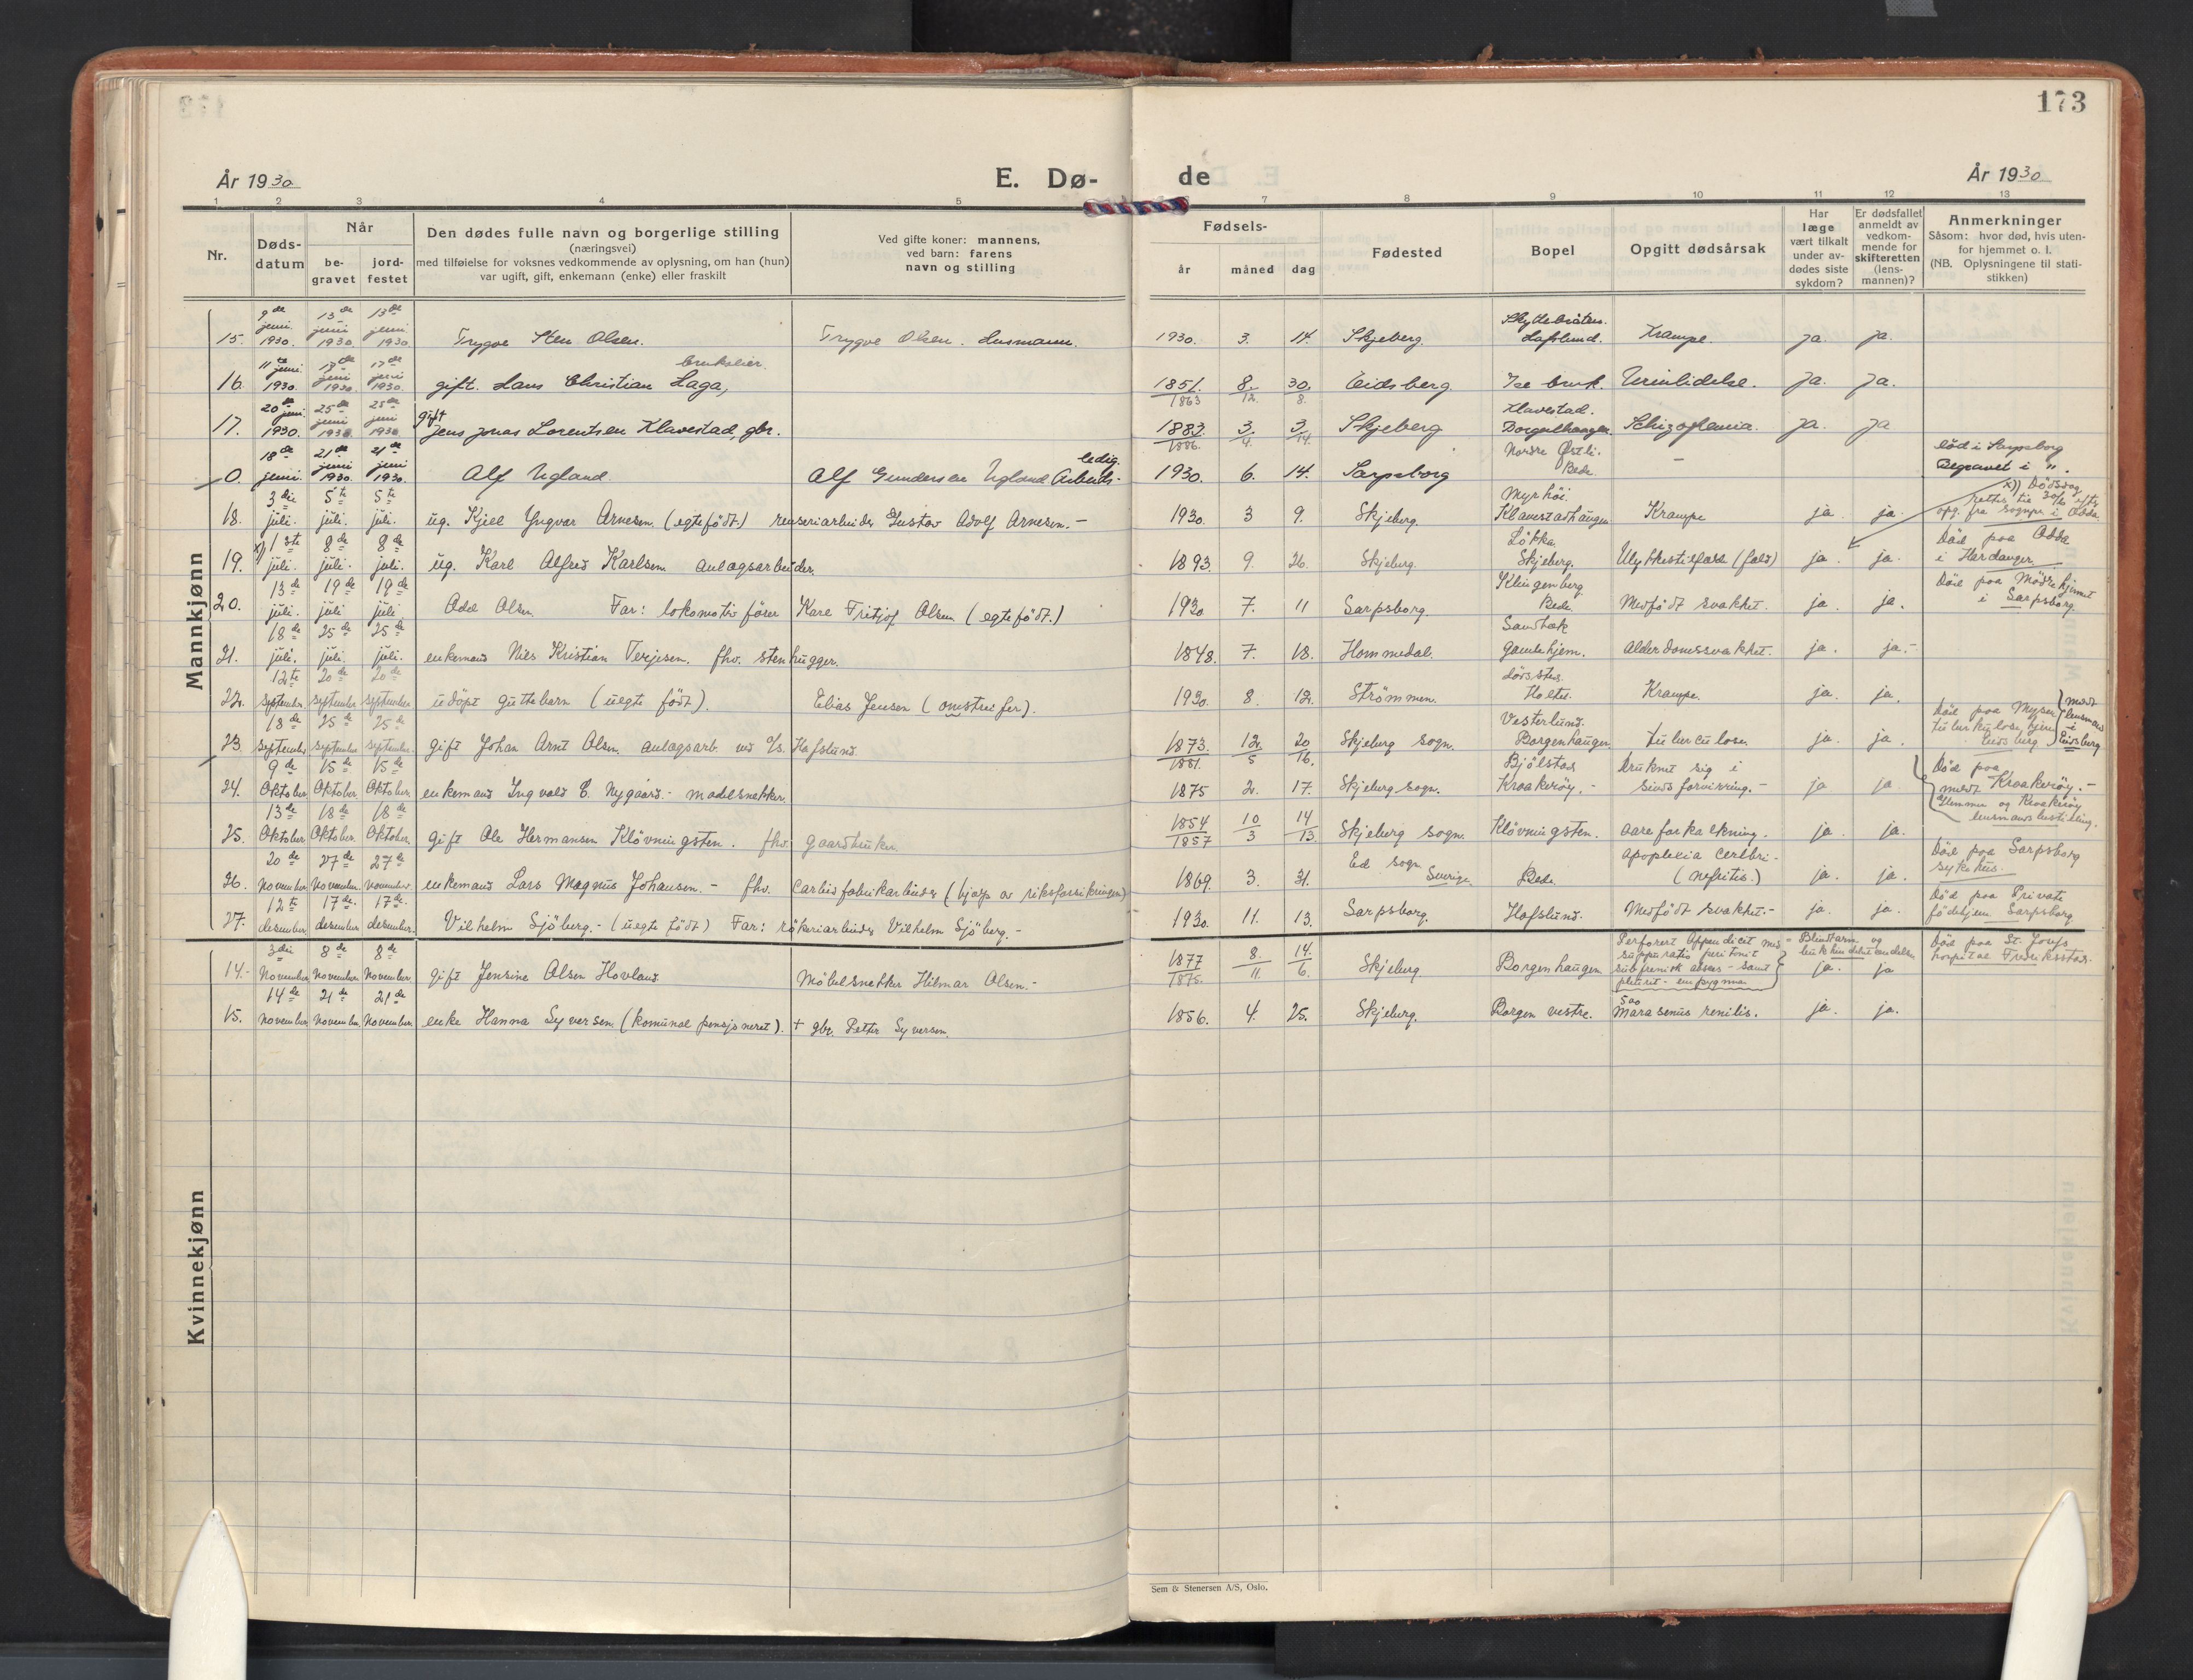 173
År 1930
E. Dø-
de
År 1930
1 2 3 4 5 7 8 9 10 11 12 13
Nr.
Døds-
datum
Når
be-
gravet
jord-
festet
Den dødes fulle navn og borgerlige stilling
(næringsvei)
med tilføielse for voksnes vedkommende av oplysning, om han (hun)
var ugift, gift, enkemann (enke) eller fraskilt
Ved gifte koner: mannens,
ved barn: farens
navn og stilling
Fødsels-
år måned dag
Fødested
Bopel
Opgitt dødsårsak
Har
læge
vært tilkalt
under av-
dødes siste
sykdom?
Er dødsfallet
anmeldt av
vedkom-
mende for
skifteretten
(lens-
mannen)?
Anmerkninger
Såsom: hvor død, hvis uten-
for hjemmet o. l.
(NB. Oplysningene til stati-
stikken)
Mannkjønn
9de 13de 13de
juni. juni juni
15. 1930. 1930. 1930. Trygve Sten Olsen. Trygve Olsen. Husmann. 1930. 3. 14. Skjeberg. Hafslund. Krampe. ja. ja.
11te 17de 17de
juni. juni juni brukseier.
16. 1930. 1930. 1930. gift. Hans Christian Haga, 1851. 8. 30. Eidsberg Ise bruk. Urinlidelse. ja. ja.
1863 12. 8.
20de 25de 25de
juni. juni juni gift Klavestad.
17. 1930. 1930 1930 Jens Jonas Lorentsen Klavestad, gbr. 1883. 3. 3. Skjeberg Borgenhaugen. Schizoflenia. ja. ja
1886. 4. 14.
18de 21de 21de ledig. Nordre Østli. død i Sarpsborg
0. juni. juni 1930. juni 1930. Alf Ugland. Alf Gundersen Ugland Arbeids- 1930. 6. 14. Sarpsborg Bede. - Begravet i ".
x) Dødsdag
rettes til 30/6 efter
opg. fra sognepr i Odda.
3die 5te 5te Myrhöi.
18. juli. juli. juli. ug. Kjell Yngvar Arnesen. (egtefödt.) renseriarbeider Gustav Adolf Arnesen. - 1930. 3 9. Skjeberg. Klavestadhaugen Krampe ja ja.
x) 1ste 8de 8de Løkka. Död paa Odda
19. juli. juli. juli. ug. Karl Alfred Karlsen anlægsarbeider. 1893. 9. 26. Skjeberg. Skjeberg. Ulykkestilfælde (fald) ja. ja. i Hardanger.
13de 19de 19de Klingenberg Död paa Mödrehjemmet
20. juli. juli juli Odd Olsen. Far: lokomotiv fører Karl Fritjof Olsen (egtefödt.) 1930 7. 11 Sarpsborg. Bede. Medfödt svakhet. ja. ja. i Sarpsborg.
18de 25de 25de Sandbæk
21. juli. juli. juli. enkemand Nils Kristian Terjesen. fhv. stenhugger. 1848. 7. 18. Hommedal. gamlehjem. Alderdomssvakhet. ja. ja.-
12te 20de 20de
22. september september september udöpt guttebarn (uegte födt). Elias Jensen (omstreifer). 1930. 8. 12. Strömmen. Holtet. Krampe. ja. ja.
18de 25de 25de Vesterlund. Död paa Mysen meldt lensmand i Eidsberg
23. september september september. gift Johan Arnt Olsen. anlægsarb. ved A/s. Hafslund. 1873. 12. 20 Skjeberg sogn. Borgenhaugen. tuberculose. ja. ja. tuberkulosehjem Eidsberg.
1881. 5 16.
9de 15de 15de Bjølstad Druknet sig i Död paa
24. Oktober. Oktober. Oktober. enkemand Ingvald E. Nygaard. - modelsnekker. 1875 2. 17. Skjeberg sogn. Kraakeröy. - sindsforvirring. - ja ja Kraakeröy. -
meldt Glemmen og Kraakeröy
lensmandsbestilling.
13de 18de 18de
25. Oktober. Oktober. Oktober. gift Ole Hermansen Klövningsten. fhv. gaardbruker. 1854 10 14 Skjeberg sogn. Klövningsten. aareforkalkning. ja. ja.
1857 3 13.
20de 27de 27de Ed sogn apoplexia cerebri- Död paa Sarpsborg
26. November November. November enkemand Lars Magnus Johansen. - fhv. carbidfabrikarbeider (hjælp av riksforsikringen) 1869. 3. 31. Sverige. Bede. (nefritis.) ja. ja. sykehus.
12te 17de 17de Död paa Private
27. desember desember desember. Vilhelm Sjöberg. - (uegte födt) Far: rökeriarbeider Vilhelm Sjöberg. - 1930. 11. 13. Sarpsborg. Hafslund. Medfödt svakhet. - ja. ja. fødehjem Sarpsborg
Kvinnekjønn
3die 8de 8de Perforert Appendicit med suppurativ peritonit = Blindtarm og bukhindebetændelse Död paa St. Josefs
14. November November. November. gift Jensine Olsen Hovland. Møbelsnekker Hilmar Olsen. - 1877 8. 14. Skjeberg Borgenhaugen subfrenisk absces - samt ja. ja hospital Fredriksstad.
1875. 11. 6. pleurit - empyema
14de 21de 21de
15. November. November. November. enke Hanna Syversen. (komunal pensjoneret). + gbr. Petter Syversen. 1856. 4. 25. Skjeberg. Borgen vestre. marasmus senilis. ja. ja.
Sem & Stenersen A/S, Oslo.